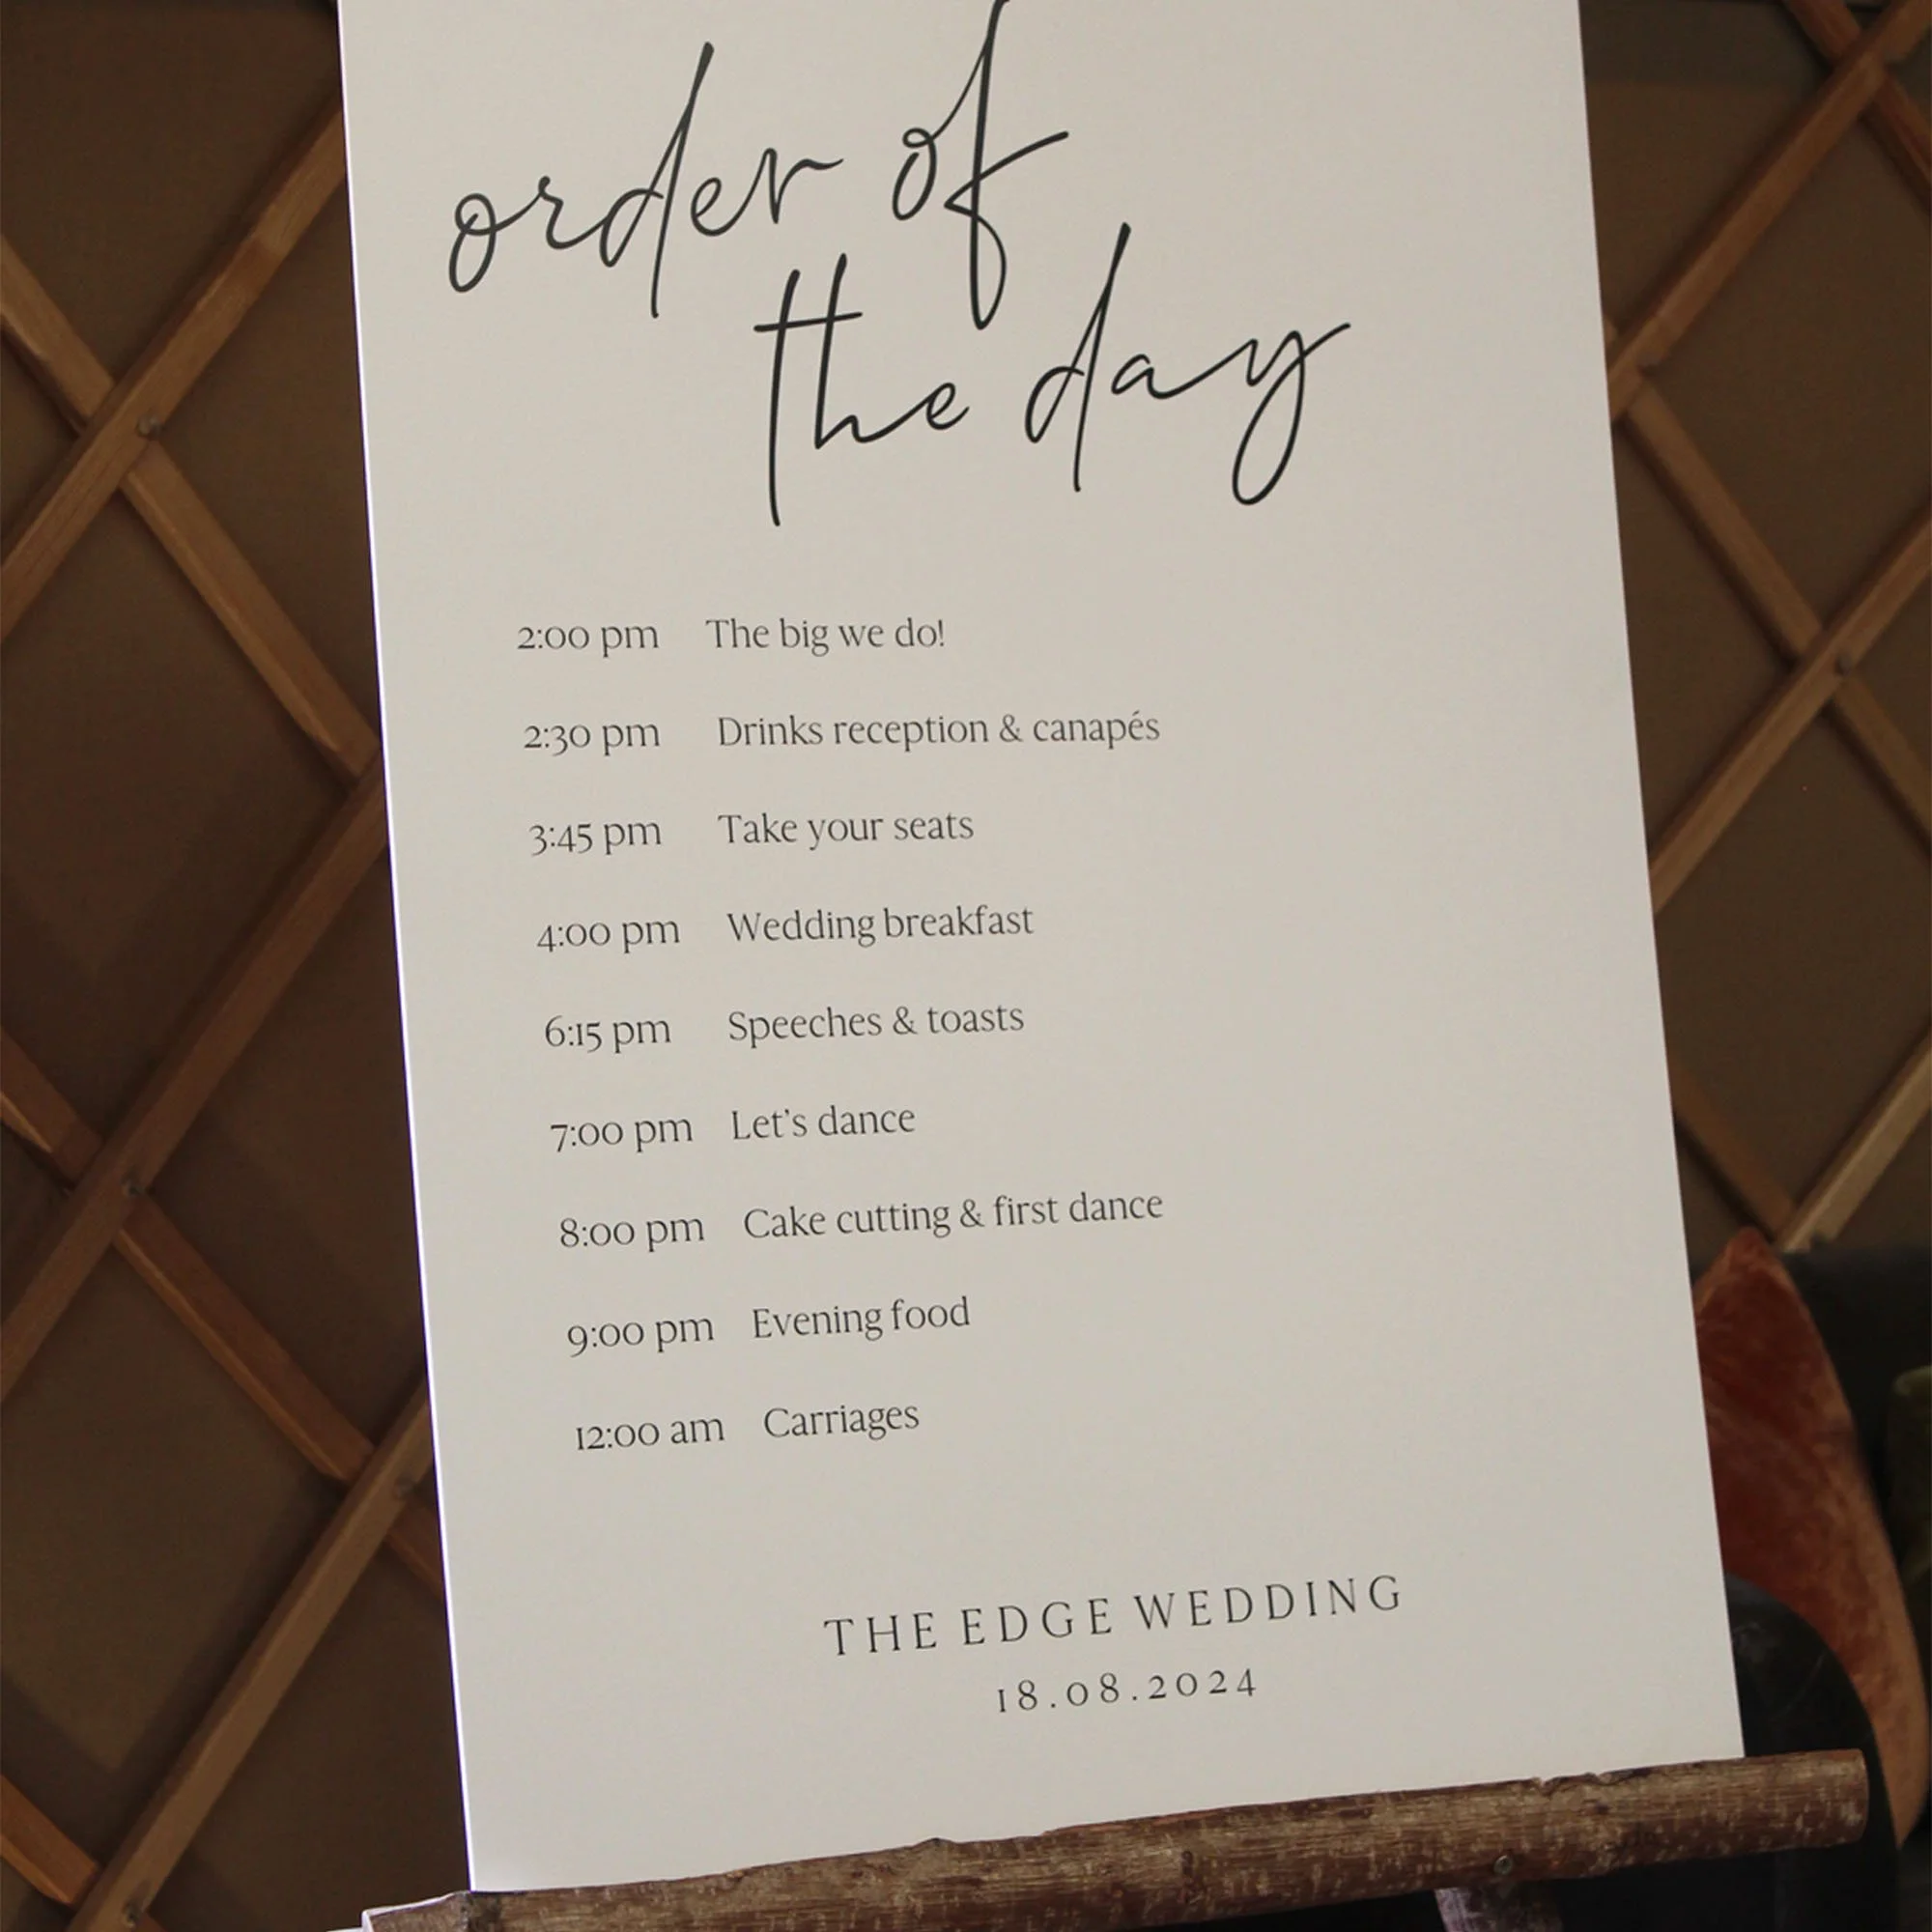 order of
the day
2:00 pm The big we do!
2:30 pm Drinks reception & canapés
3:45 pm Take your seats
4:00 pm Wedding breakfast
6:15 pm Speeches & toasts
7:00 pm Let's dance
8:00 pm Cake cutting & first dance
9:00 pm Evening food
12:00 am Carriages
THE EDGE WEDDING
18.08.2024